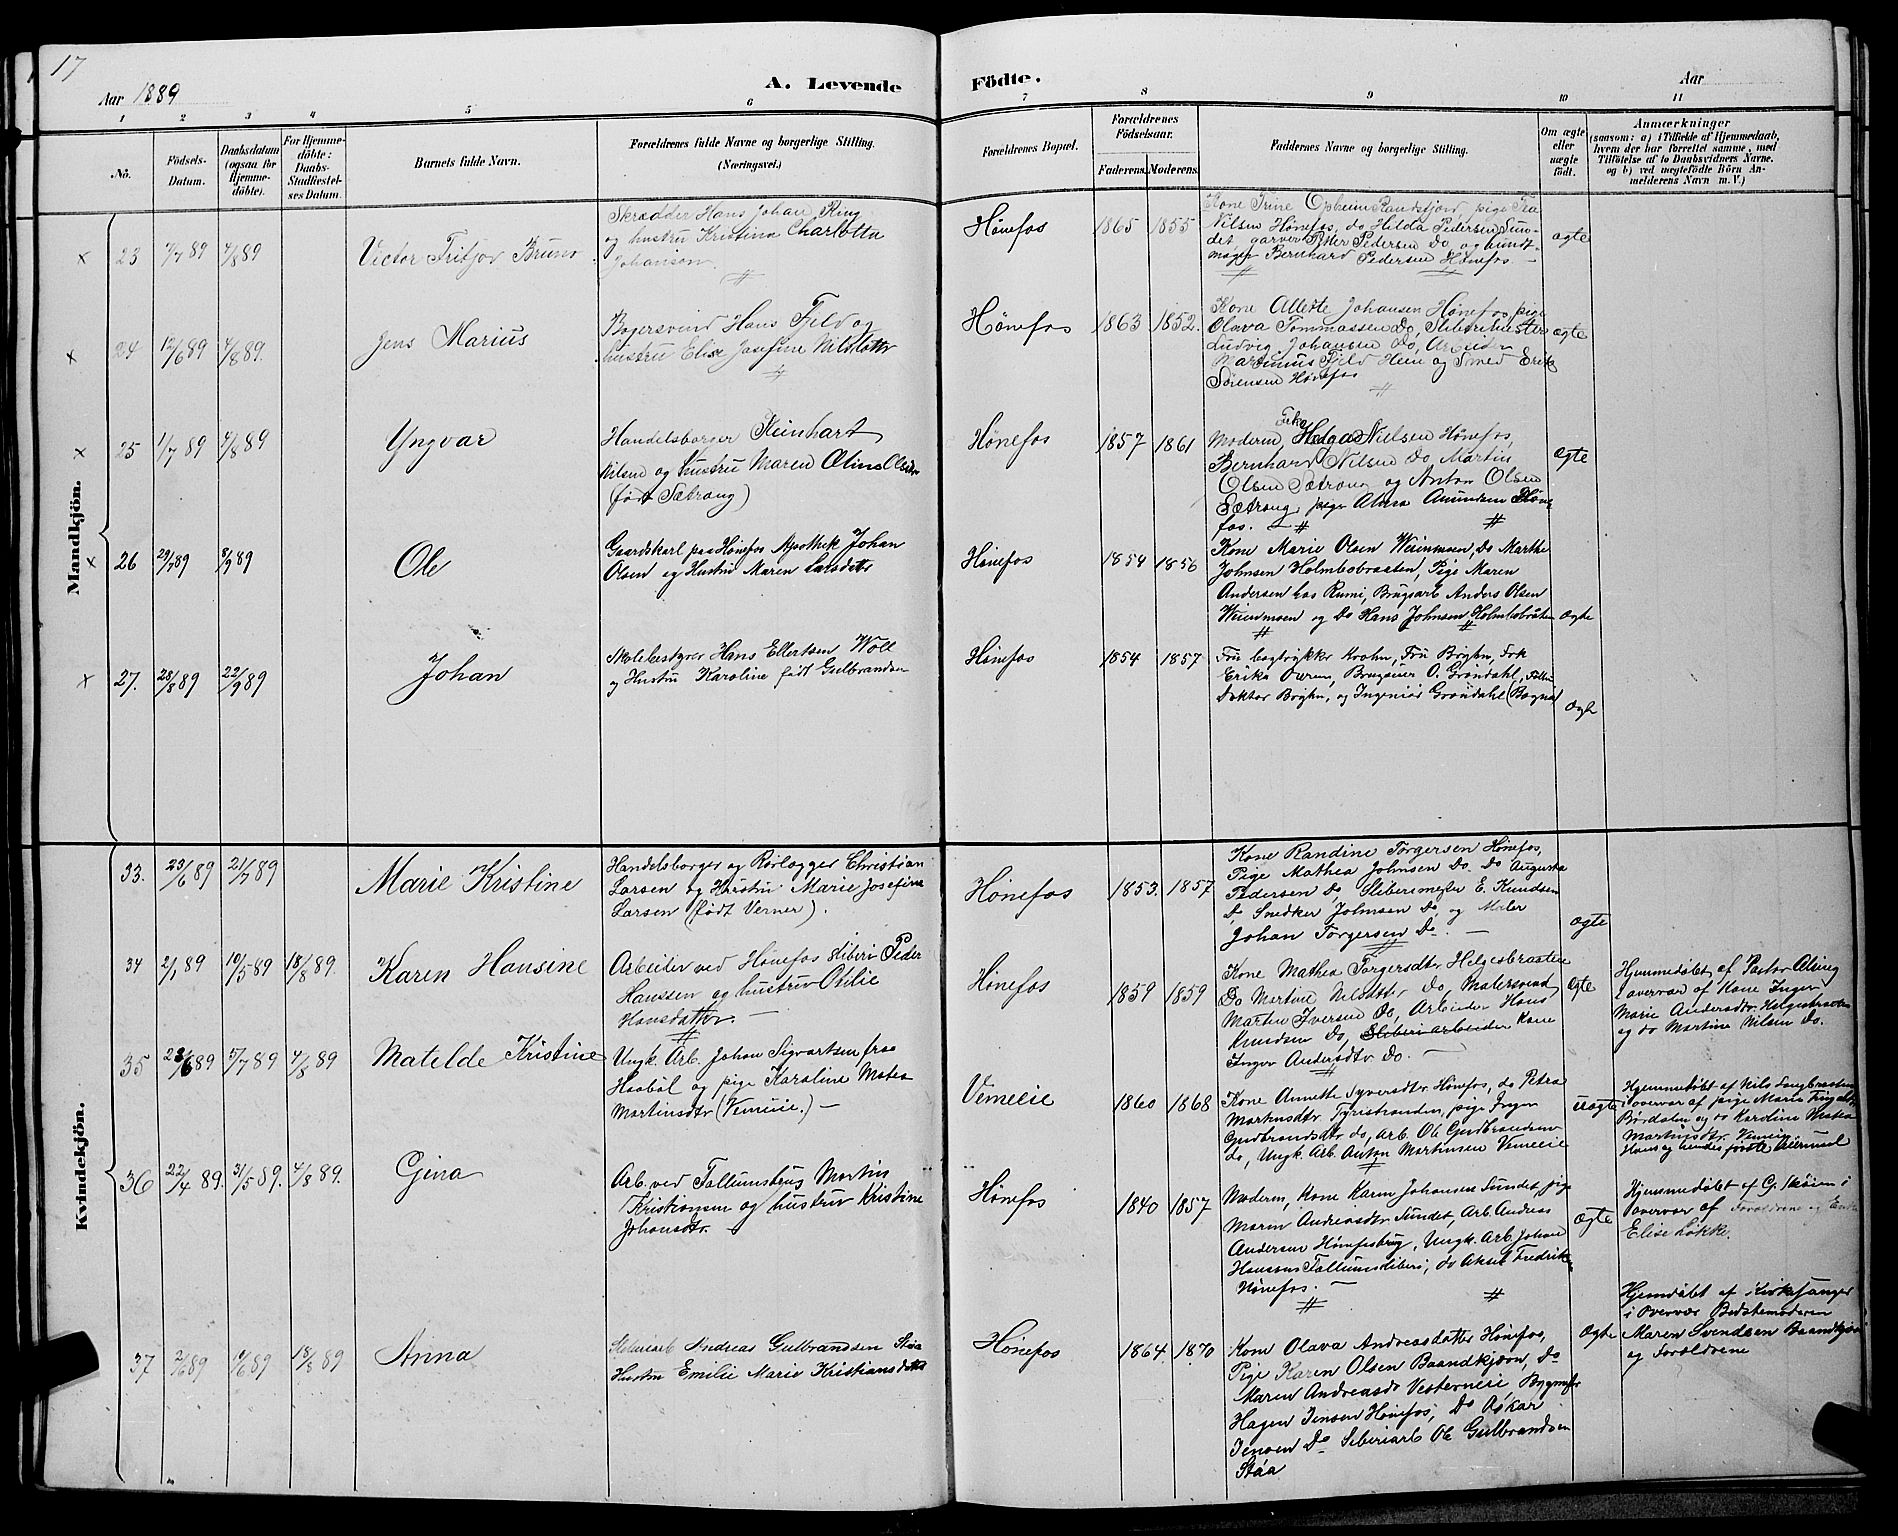 17
Aar 1889
A. Levende
Födte.
Aar
1 2 3 4 5 6 7 8 9 10 11
No.
Födsels-Datum.
Daabsdatum (ogsaa for Hjemme-döbte).
For Hjemme-döbte: Daabs-Stadfæstel-ses Datum.
Barnets fulde Navn.
Forældrenes fulde Navne og borgerlige Stilling.
(Næringsvei.)
Forældrenes Bopæl.
Forældrenes Födselsaar.
Faderens. Moderens.
Faddernes Navne og borgerlige Stilling.
Om ægte eller uægte födt.
Anmærkninger
(saasom: a) i Tilfælde af Hjemmedaab,
hvem der har forrettet samme, med
Tilföielse af to Daabsvidners Navne.
og b) ved uægtefödte Börn An-
melderens Navn m. V.)
Mandkjön.
× 23 7/7 89 4/8 89 Victor Fritjov Bruno
Skrædder Hans Johan Ring
og hustru Kristina Charlotta
Johanson.
Hønefos 1865 1855
Kone Trine Opheim Randsfjord, pige
Nilsen Hønefos, do Hilda Pedersen Sun-
det, garver Petter Pedersen Do, og bundt-
mager Bernhard Pedersen Hønefos.
ægte
× 24 12/6 89 4/8 89. Jens Marius
Bagersvend Hans Fjeld og
hustru Elise Josefine Nilsdatter
Hønefos 1863 1852.
Kone Allette Johansen Hønefos, pige
Olava Tommassen Do, Sliberimester
Ludvig Johansen Do, Arbeider
Martinius Fjeld Hein og Smed Erik
Sörensen Hønefos
ægte
× 25 1/7 89 4/8 89 Yngvar
Handelsborger Reinhart
Nilsen og hustru Maren Oline Olsdtr
(født Sætrang)
Hønefos 1857 1861
Moderen, Frk Helga Nielsen Hønefos,
Bernhard Nilsen Do, Martin
Olsen Sætrang og Anton Olsen
Sætrang, pige Amundsen Høne-
fos.
ægte
× 26 29/7 89 8/9 89 Ole
Gaardskarl paa Hønefos Apothek Johan
Olsen og Hustru Maren Larsdatter
Hønefos 1854 1856
Kone Marie Olsen Weienmoen, Do Marthe
Johnsen Holmbobraaten, Pige Maren
Andersen hos Rumi, Brugsarb Anders Olsen
Weienmoen og Do Hans Johnsen Holmbobråten
ægte
× 27. 28/8 89 22/9 89 Johan
Skolebestyrer Hans Ellertsen Woll
og Hustru Karoline født Gulbrandsen
Hønefos 1854 1857
Fru bogtrykker Krohn, Fru Frk
Erika Brugseier O. Gröndahl,
Doktor og Ingeniör Gröndahl (Bagna)
ægte
Kvindekjön.
33. 23/6 89 21/7 89 Marie Kristine
Handelsborger og Rörlægger Christian
Larsen og Hustru Marie Josefine
Larsen (født Verner).
Hønefos 1853. 1857
Kone Randine Torgersen Hønefos,
Pige Mathea Johnsen Do. Do Augusta
Pedersen Do, Sliberimester E. Knudsen
Do, Snedker Johnsen Do, og Maler
Johan Torgersen Do.
ægte
34 2/1 89 10/5 89 18/8 89. Karen Hansine
Arbeider ved Hønefos Sliberi Peder
Hanssen og hustru Otilie
Hansdatter.
Hønefos 1859 1859
Kone Mathea Torgersdtr. Helgesbraaten
Do Martine Nilsdtr Do, Malersvend
Martin Iversen Do, Arbeider Hans
Knudsen Do, Sliberiarbeider Kone
Inger Andersdtr Do.
ægte
Hjemmedøbt af Pastor Alsing
i overvær af Kone Inger
Marie Andersdtr. Helgesbraaten
og do Martine Nilsen Do.
35 23/6 89 5/7 89 4/8 89 Matilde Kristine
Ungk. Arb. Johan Sigvartsen fra
Haabøl og pige Karoline Matea
Martinsdtr (Vemeie.)
Vemeeie 1860 1868
Kone Annette Syversdtr Hønefos, do Petra
Martinsdtr. Tyristranden, pige Inger
Gudbrandsdtr do, Arb. Ole Gudbrandsen
do, Ungk. Arb. Anton Martinsen Vemeeie
uægte
Hjemmedøbt af Nils
i overvær af pige Marie
og do Karoline Matea
Martinsdtr. Vemeie
Hans og hendes første Leiermaal
36 22/4 89. 31/5 89. 4/8 89. Gina
Arb. ved Follumsbrug Martin
Kristiansen og hustru Kristine
Johansdtr.
Hønefos 1840 1857
Moderen, Kone Karen Johansen Sundet, pige
Maren Andreasdtr Sundet, Arb. Andreas
Andersen Hønefosbrug, Ungk. Arb. Johan
Hansen Follumsliberi, do Aksel Fredrik-
Hönefos.
ægte
Hjemmedøbt af G. Skøien i
overvær af Forældrene og
Elise Løkke.
37 2/6 89 19/6 89 18/8 89 Anna
Sliberiarb Andreas Gulbrandsen Støa
Hustru Emilie Marie Kristiansdatter
Hønefos 1864 1870
Kone Olava Andreasdatter Hønefos,
Pige Karen Olsen Baandkjøon, Do
Maren Andreasdr Vesterneie, Bygmstr
Hagen Jensen Hønefos, Do Oskar
Jensen Do Sliberiarb Ole Gulbrandsen
Støa
ægte
Hjemdøbt af Kirkesanger
i Overvær Bedstemoderen
Maren Svendsen Baandkjøn
og Forældrene